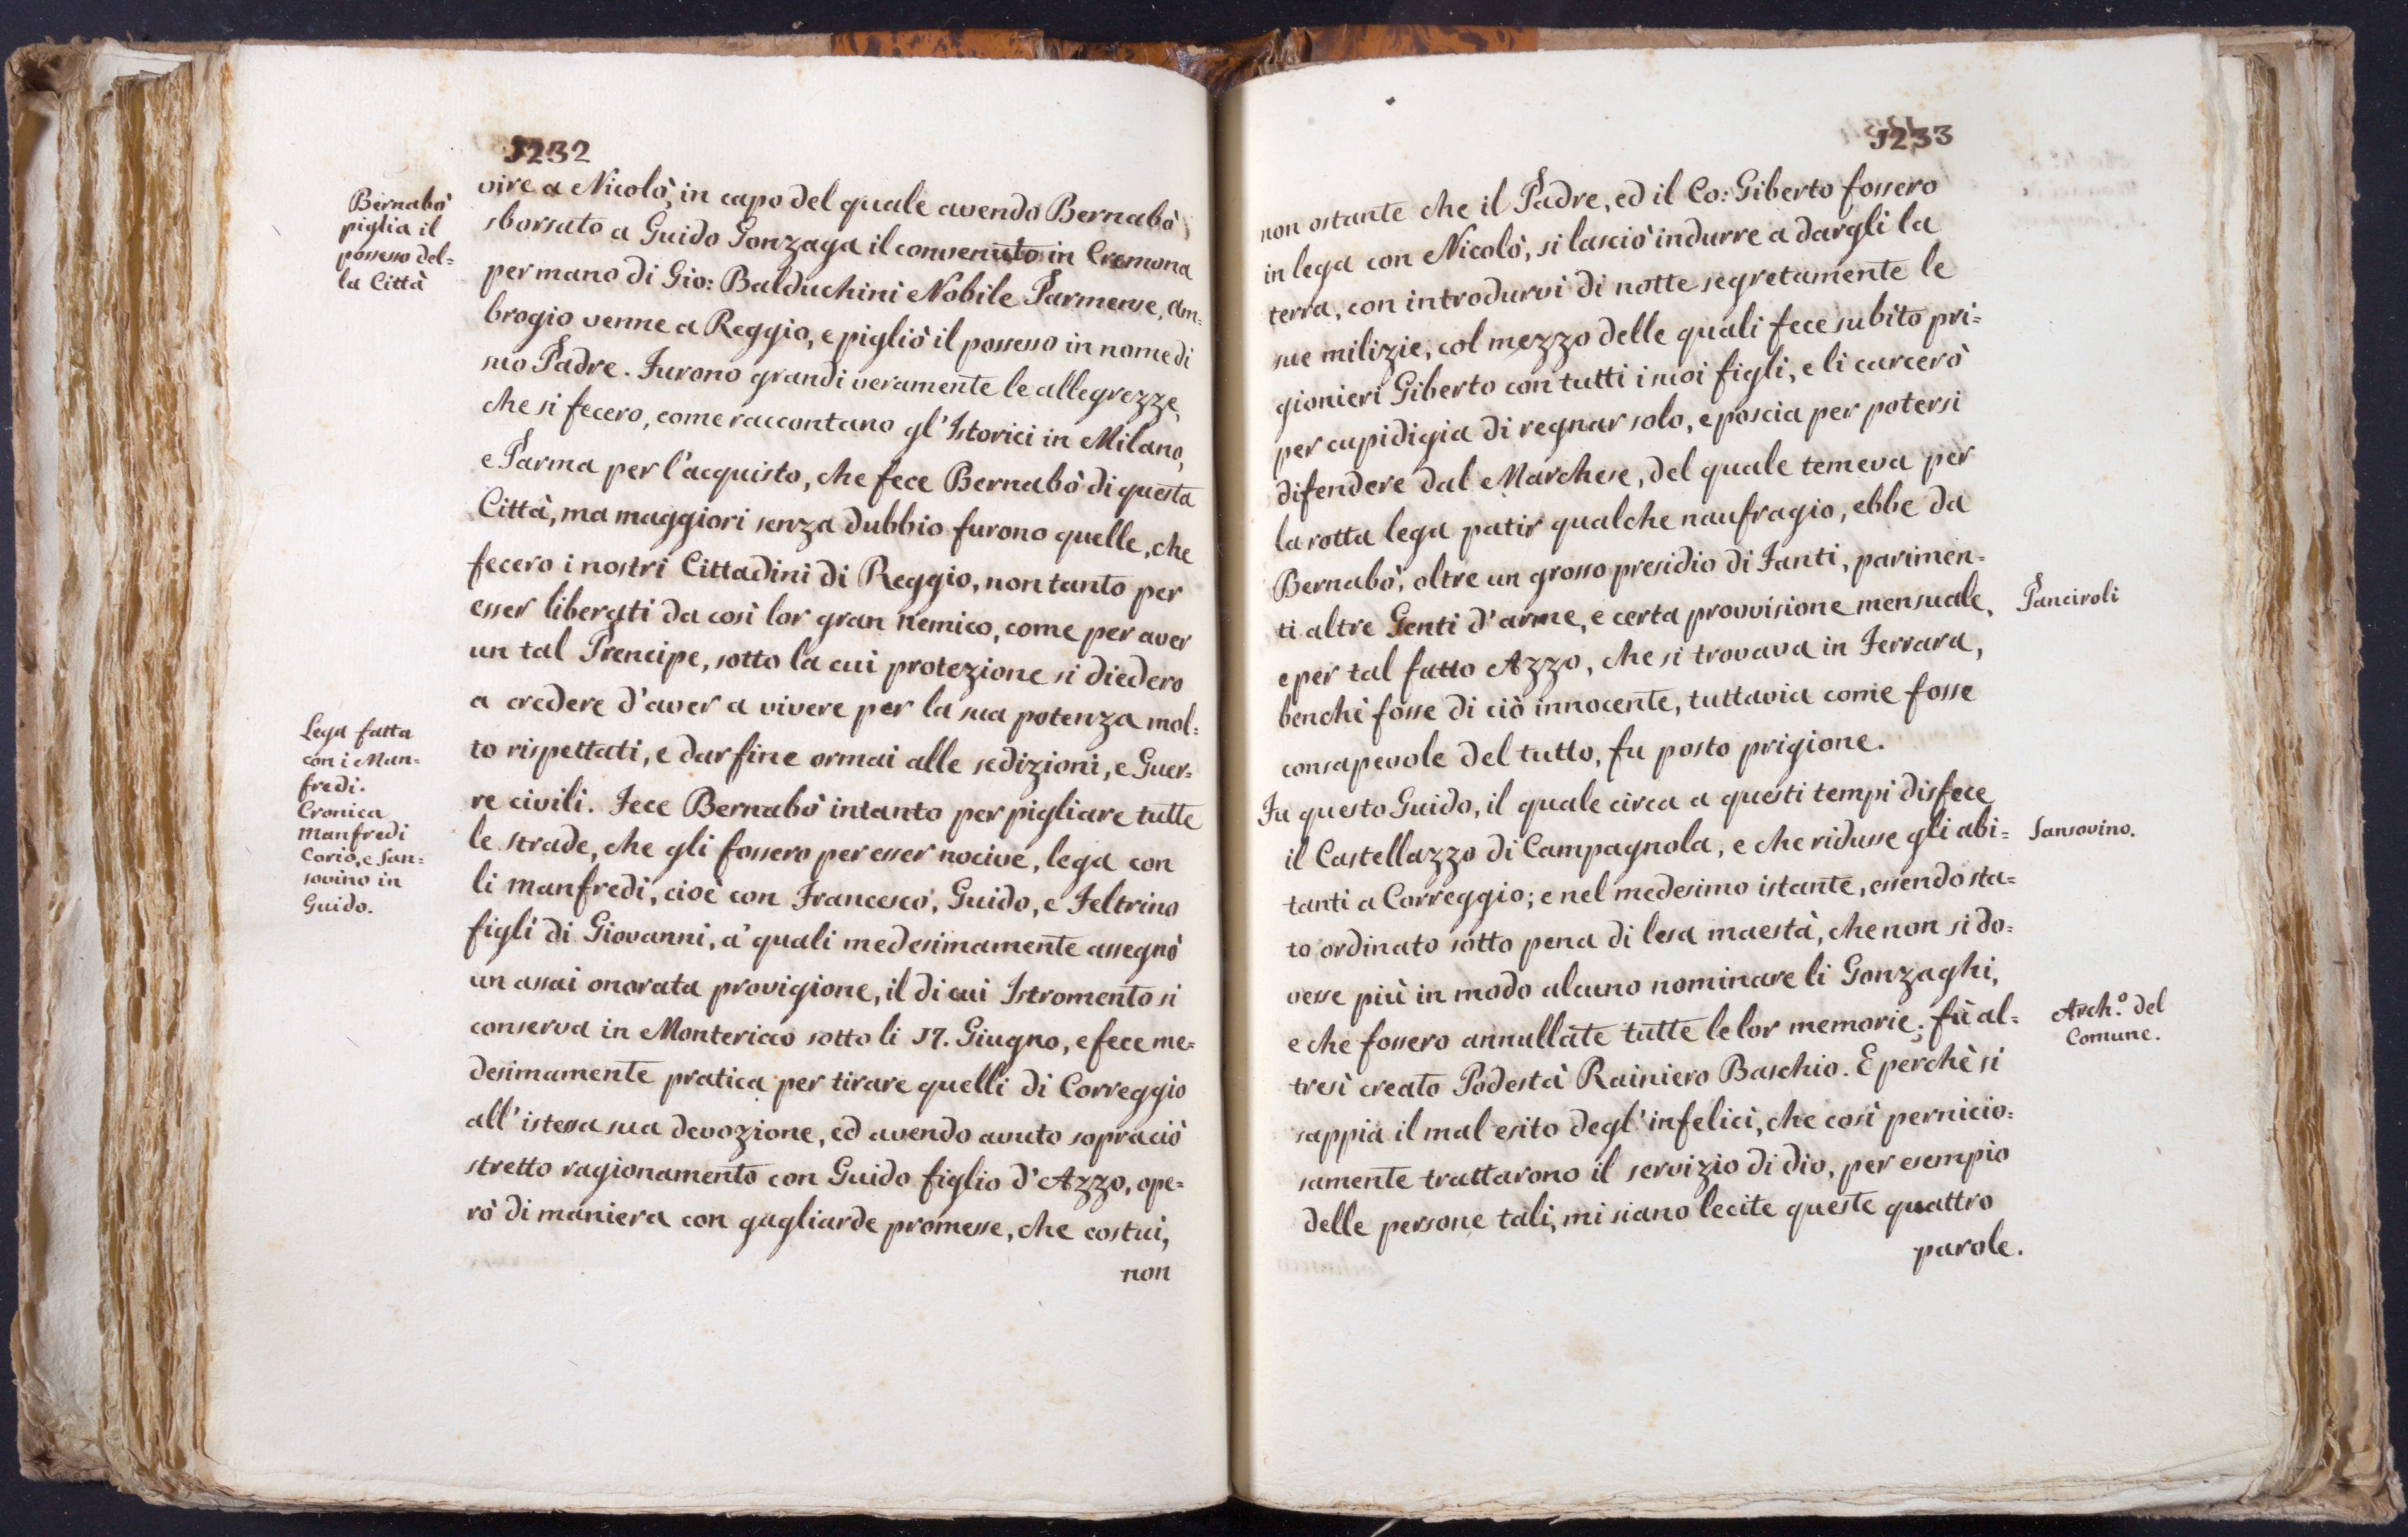 1232
Bernabò
piglia il
possesso del=
la Città
vire a Nicolò, in capo del quale avendo Bernabò
sborsato a Guido Gonzaga il convenuto in Cremona
per mano di Gio: Balduchini Nobile Parmense, Am=
brogio venne a Reggio, e pigliò il possesso in nome di
suo Padre. Furono grandi veramente le allegrezze,
che si fecero, come raccontano gl'Istorici in Milano,
e Parma per l'acquisto, che fece Bernabò di questa
Città, ma maggiori senza dubbio furono quelle, che
fecero i nostri Cittadini di Reggio, non tanto per
esser liberati da così lor gran nemico, come per aver
un tal Prencipe, sotto la cui protezione si diedero
a credere d'aver a vivere per la sua potenza mol=
to rispettati, e dar fine ormai alle sedizioni, e Guer=
re civili. Fece Bernabò intanto per pigliare tutte
le strade, che gli fossero per esser nocive, lega con
li Manfredi, cioè con Francesco, Guido, e Feltrino
figli di Giovanni, a' quali medesimamente assegnò
un assai onorata provigione, il di cui Istromento si
conserva in Montericco sotto li 17. Giugno, e fece me=
desimamente pratica per tirare quelli di Correggio
all'istessa sua devozione, ed avendo avuto sopraciò
stretto ragionamento con Guido figlio d'Azzo, ope=
rò di maniera con gagliarde promesse, che costui,
non
Lega fatta
con i Man=
fredi.
Cronica
Manfredi
Corio, e San=
sovino in
Guido.
1233
non ostante che il Padre, ed il Co: Giberto fossero
in lega con Nicolò, si lasciò indurre a dargli la
terra, con introdurvi di notte segretamente le
sue milizie, col mezzo delle quali fece subito pri=
gionieri Giberto con tutti i suoi figli, e li carcerò
per cupidigia di regnar solo, e poscia per potersi
difendere dal Marchese, del quale temeva per
la rotta lega patir qualche naufragio, ebbe da
Bernabò, oltre un grosso presidio di Fanti, parimen=
ti altre Genti d'arme, e certa provvisione mensuale,
e per tal fatto Azzo, che si trovava in Ferrara,
benchè fosse di ciò innocente, tuttavia come fosse
consapevole del tutto, fu posto prigione.
Fu questo Guido, il quale circa a questi tempi disfece
il Castellazzo di Campagnola, e che ridusse gli abi=
tanti a Correggio; e nel medesimo istante, essendo sta=
to ordinato sotto pena di lesa maestà, che non si do=
vesse più in modo alcuno nominare li Gonzaghi,
e che fossero annullate tutte le lor memorie; fù al=
tresì creato Podestà Rainiero Baschio. E perchè si
sappia il mal esito degl'infelici, che così pernicio=
samente trattarono il servizio di dio, per esempio
delle persone tali, mi siano lecite queste quattro
parole.
Panciroli
Sansovino.
Arch.º del
Comune.